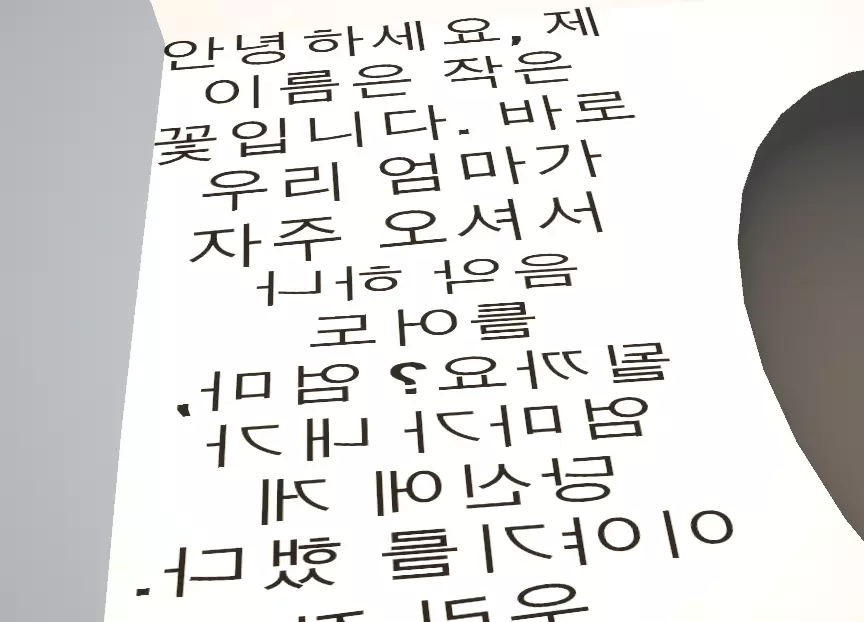 안녕하세요, 제
이름은 작은
꽃입니다. 바로
우리 엄마가
자주 오셔서
음악 하나
틀어도
될까요? 엄마,
엄마가 내가
당신에게
이야기를 했다.
우리